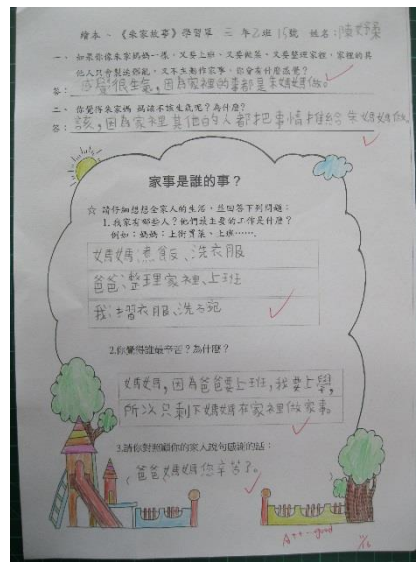 繪本、《朱家故事》學習單 三年乙班15號 姓名:陳
一、如果你像朱家媽媽一樣,又要上班、又要做菜、又要整理家裡,家裡的其
他人只會製造髒亂,又不主動作家事,你會有什麼感覺?
答:感覺很生氣,因為家裡的事都是朱媽媽做。
二、你覺得朱家媽媽該不該生氣呢?為什麼?
答:該,因為家裡其他的人都把事情推給朱媽媽做。
家事是誰的事?
☆ 請仔細想想全家人的生活,並回答下列問題:
1.我家有哪些人?他們最主要的工作是什麼?
例如:媽媽:上街買菜、上班……
媽媽:煮飯、洗衣服
爸爸:整理家裡、上班
我:摺衣服、洗碗
2.你覺得誰最辛苦?為什麼?
媽媽,因為爸爸要上班,我要上學,
所以只剩下媽媽在家裡做家事。
3.請你對照顧你的家人說句感謝的話:
爸爸媽媽您辛苦了。
A++ good